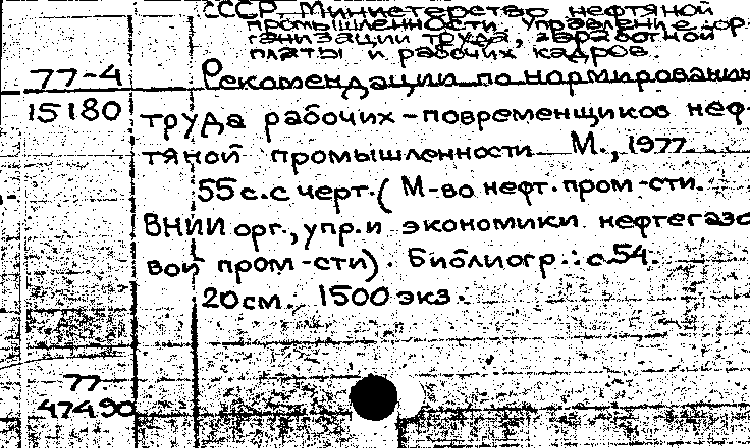 СССР. Министерство нефтяной
промышленности. Управление ор-
ганизации труда, заработной
платы и рабочих кадров.
77-4 Рекомендации по нормированию
15180 труда рабочих-повременщиков неф-
тяной промышленности. М., 1977.
55 с. с черт. ( М-во нефт. пром-сти.
ВНИИ орг., упр. и экономики нефтегазо
вой пром-сти). Библиогр.: с. 54.
20 см. 1500 экз.
77
47490